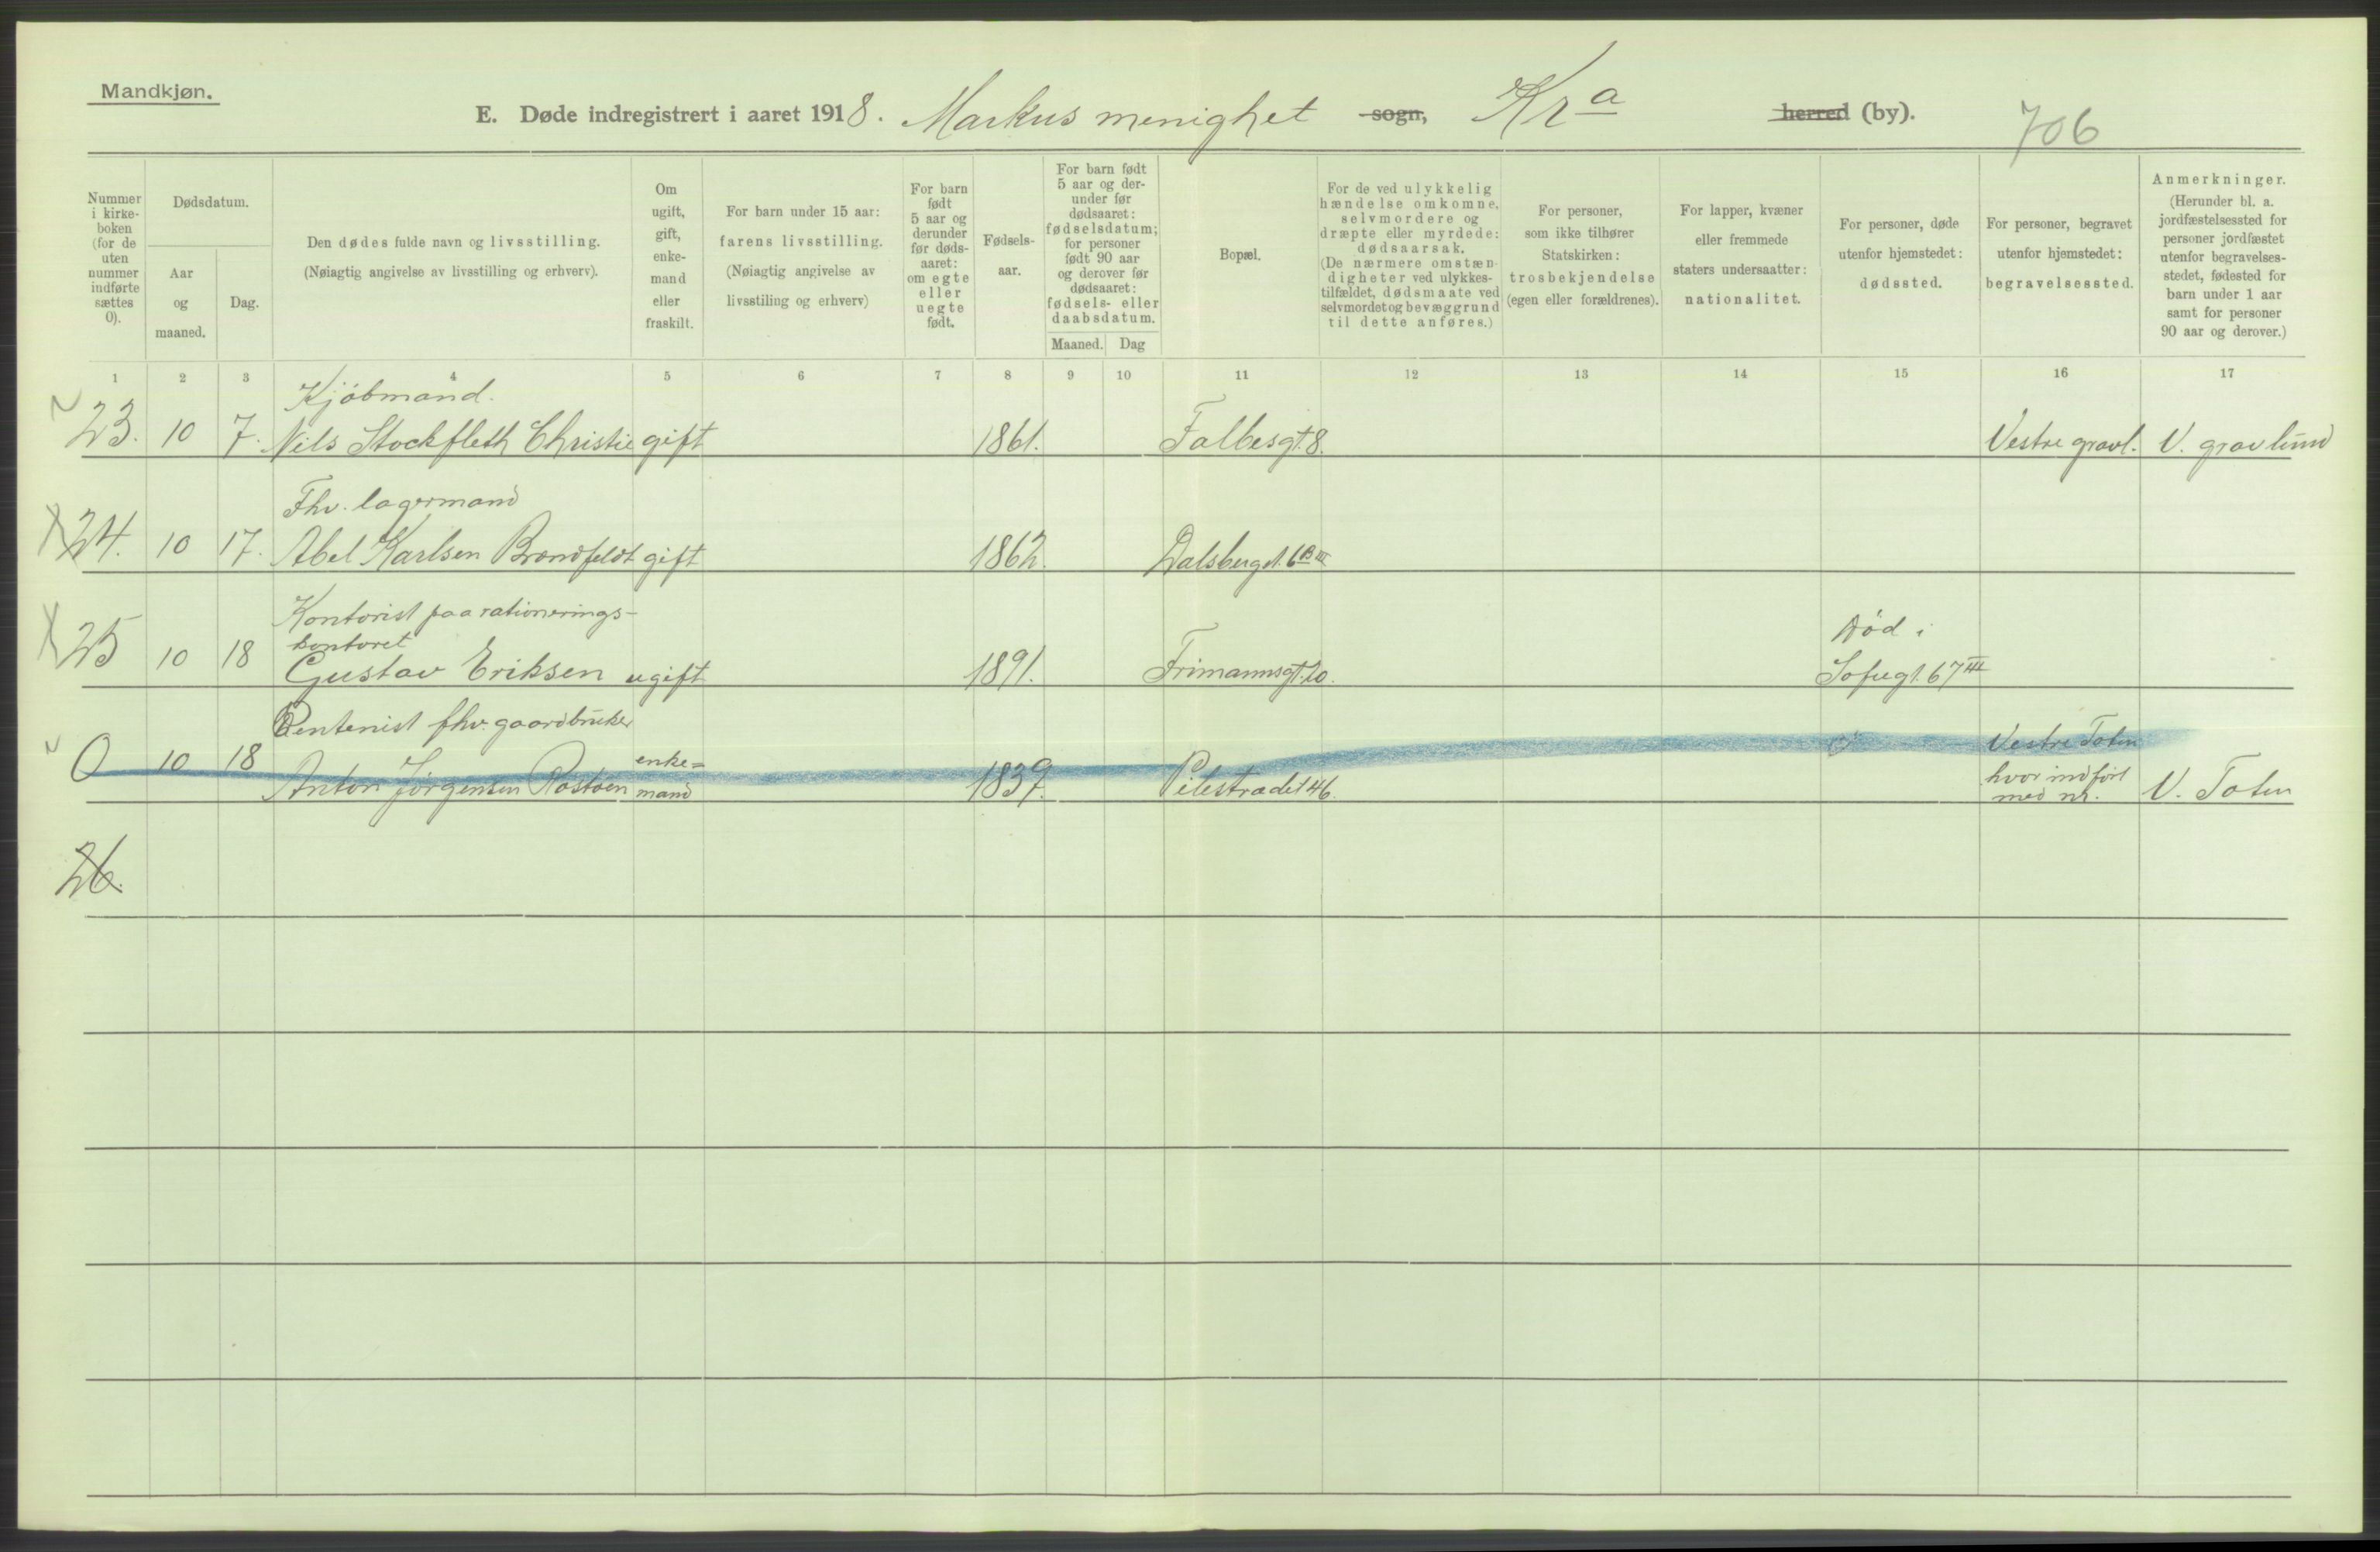 Mandkjøn.
E. Døde indregistrert i aaret 1918. Markus menighet sogn, Kra herred (by).
706
Nummer i kirke- boken (for de uten nummer indførte sættes 0).
Dødsdatum.
Aar og maaned.
Dag.
Den dødes fulde navn og livsstilling.
(Nøiagtig angivelse av livsstilling og erhverv).
Om ugift, gift, enke- mand eller fraskilt.
For barn under 15 aar: farens livsstilling.
(Nøiagtig angivelse av livsstiling og erhverv)
For barn født 5 aar og derunder før døds- aaret: om egte eller uegte født.
Fødsels- aar.
For barn født 5 aar og der- under før dødsaaret: fødselsdatum; for personer født 90 aar og derover før dødsaaret: fødsels- eller daabsdatum.
Maaned. Dag
Bopæl.
For de ved ulykkelig hændelse omkomne, selvmordere og dræpte eller myrdede: dødsaarsak.
(De nærmere omstæn- digheter ved ulykkes- tilfældet, dødsmaate ved selvmordet og bevæggrund til dette anføres.)
For personer, som ikke tilhører Statskirken: trosbekjendelse (egen eller forældrenes).
For lapper, kvæner eller fremmede staters undersaatter: nationalitet.
For personer, døde utenfor hjemstedet: dødssted.
For personer, begravet utenfor hjemstedet: begravelsessted.
Anmerkninger.
(Herunder bl. a. jordfæstelsessted for personer jordfæstet utenfor begravelses- stedet, fødested for barn under 1 aar samt for personer 90 aar og derover.)
1 2 3 4 5 6 7 8 9 10 11 12 13 14 15 16 17
Kjöbmand.
23. 10 7. Nils Stockfleth Christie gift 1861. Falbesgt. 8. Vestre gravl. V. gravlund
Fhv. lagermand
24. 10 17. Abel Karlsen Brandfeldt gift 1862. Dalsbergst. 6B III
Kontorist paa rationerings-
kontoret
Död i
25 10 18 Gustav Eriksen ugift 1891. Frimannsgt. 20. Sofiegt. 67 III
Rentenist fhv. gaardbruker
Vestre Toten
0 10 18 enke=
Anton Jörgensen Rostöen mand 1839. Pilestrædet 46. hvor indfört
med nr. V. Toten
26.